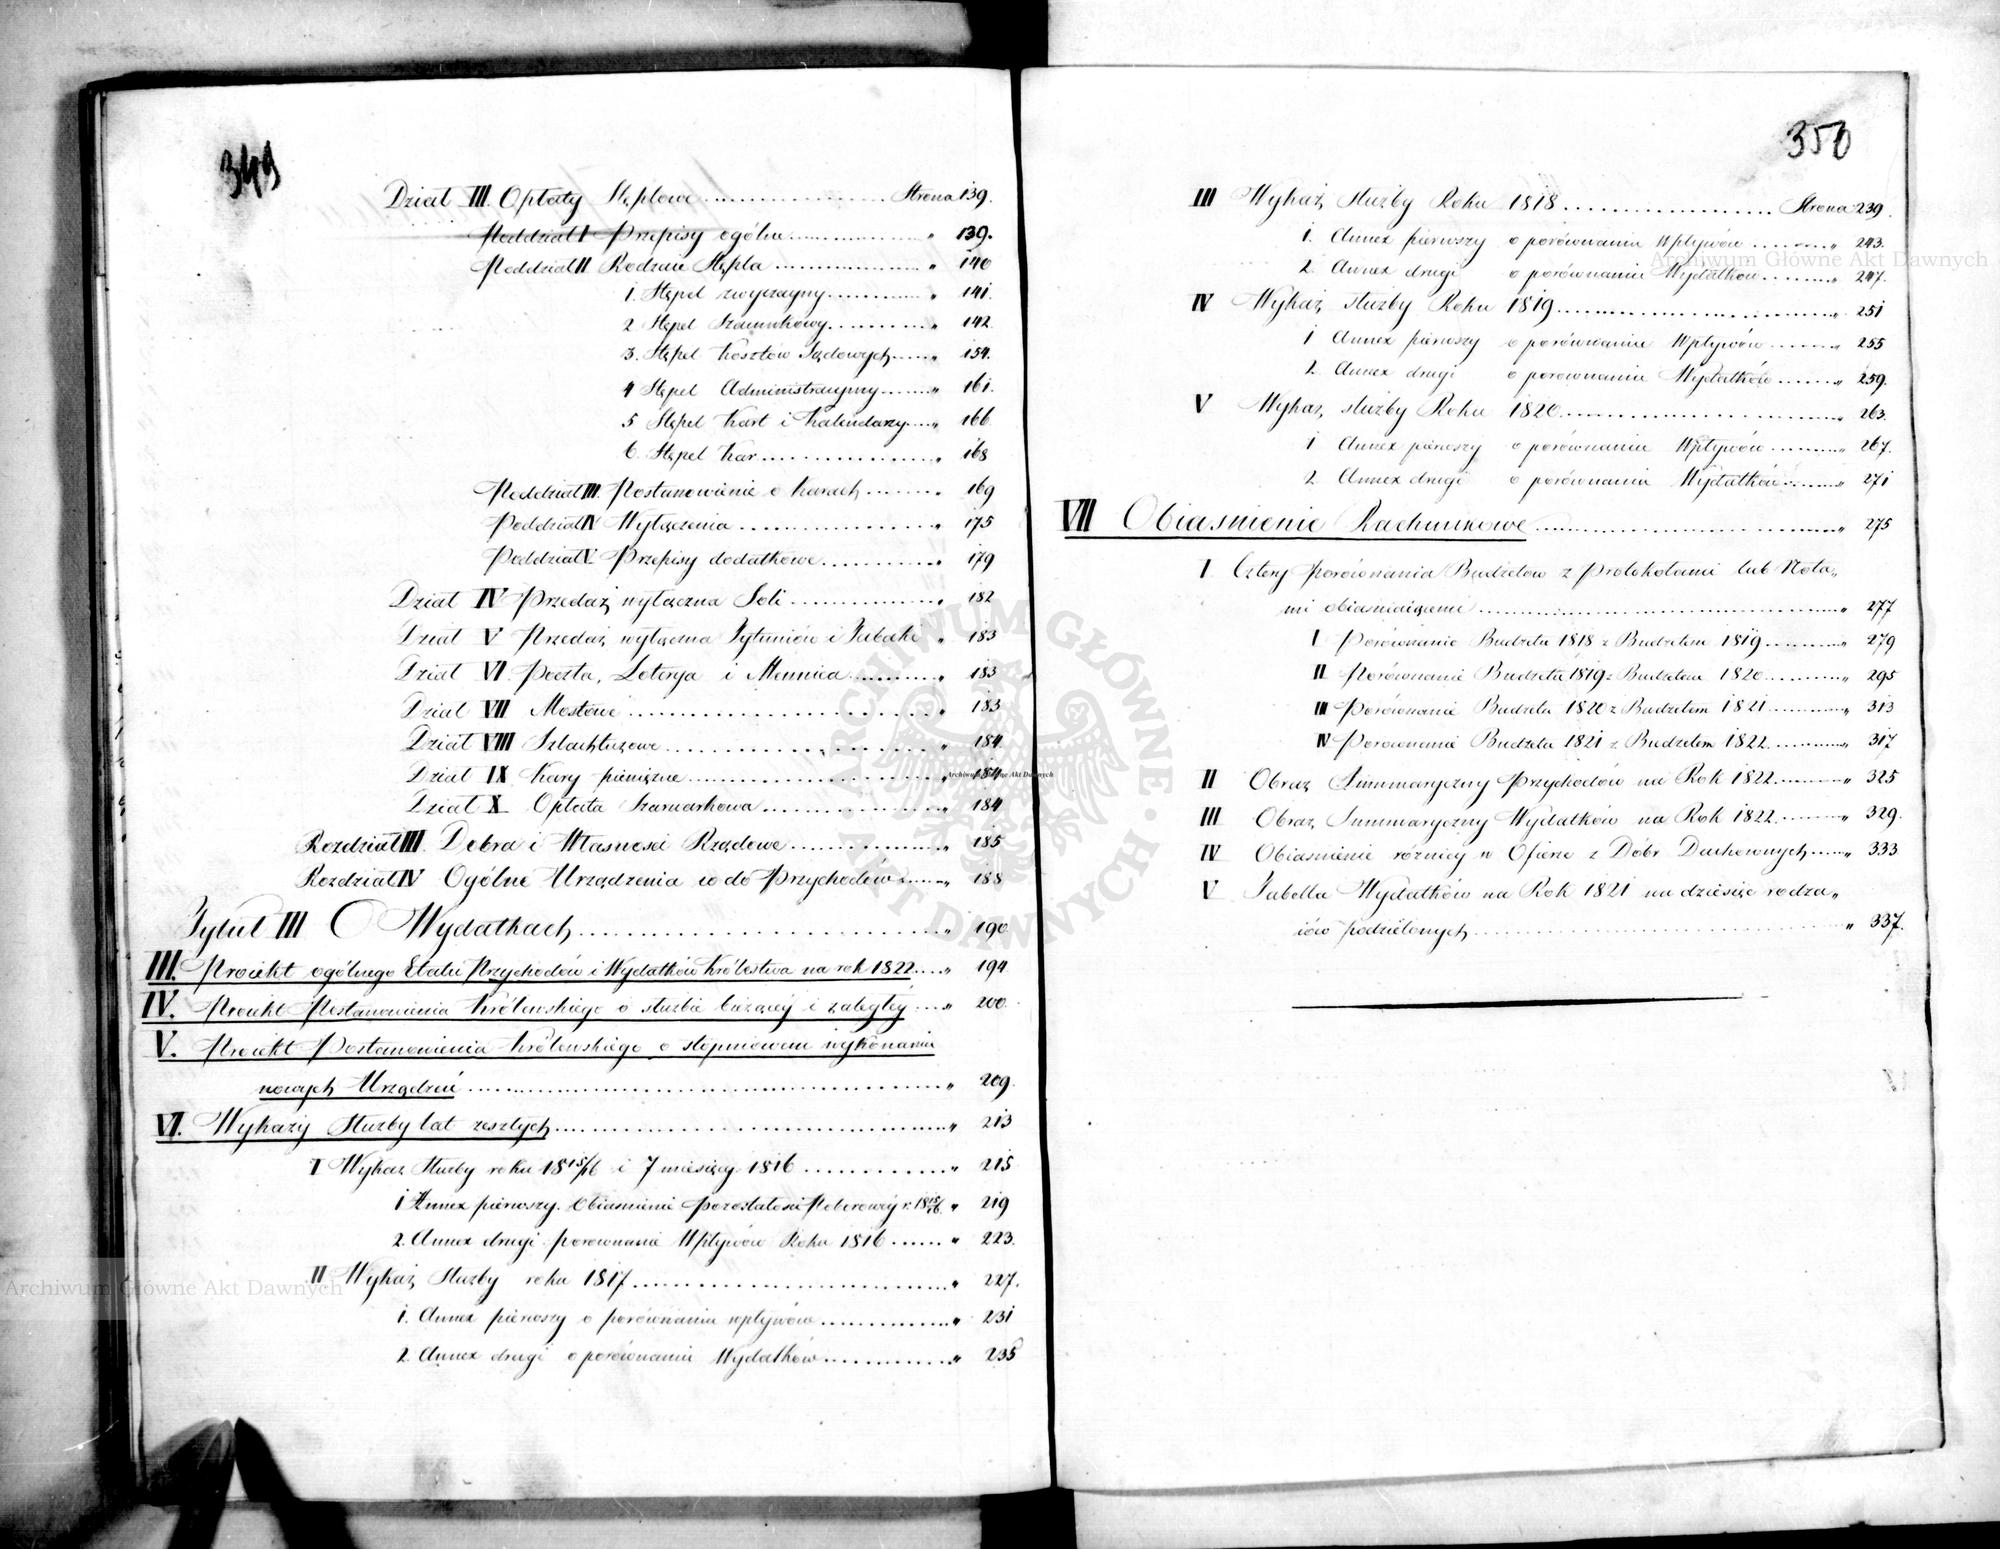 349
Dział III. Opłaty Stęplowe Strona 139.
Poddział I Przepisy ogólne " 139.
Poddział II Rodzaie Stępla " 140
1. Stępel zwyczayny " 141.
2 Stępel Szacunkowy " 142.
3. Stępel Kosztów Sądowych " 154.
4 Stępel Administracyiny " 161.
5 Stępel Kart i Kalendarzy " 166
6. Stępel Kar " 168
Poddział III. Postanowienie o karach " 169
Poddział IV Wyłączenia " 175
Poddział V. Przepisy dodatkowe " 179
Dział IV Przedaż wyłączna Soli " 182
Dział V Przedaż wyłączna Tytuniów i Tabaki " 183
Dział VI Poczta, Loterya i Mennica " 183
Dział VII Mostowe " 183
Dział VIII Szlachtuzowe " 184.
Dział IX Kary pieniężne " 184
Dział X Opłata Szarwarkowa " 184
Rozdział III. Dobra i Własności Rządowe " 185
Rozdział IV Ogólne Urządzenia co do Przychodów " 188
Tytuł III O Wydatkach " 190
III. Proiekt ogólnego Etatu Przychodów i Wydatków Królestwa na rok 1822 " 194
IV. Proiekt Postanowienia Królewskiego o służbie bieżącey i zaległey " 200.
V. Proiekt Postanowienia Królewskiego o stopniowem wykonaniu
nowych Urządzeń " 209.
VI. Wykazy Służby lat zeszłych " 213
I Wykaz Służby roku 1815/16 i 7 miesięcy 1816 " 215
1 Annex pierwszy. Obiaśnienie pozostałości Poborowéy r. 1815/16. " 219
2. Annex drugi porównanie Wpływów Roku 1816 " 223.
II Wykaz Służby roku 1817 " 227.
1. Annex pierwszy o porównaniu wpływów " 231
2. Annex drugi o porównaniu Wydatków " 235
350
III Wykaz służby Roku 1818 Strona 239.
1. Annex pierwszy o porównaniu Wpływów " 243.
2. Annex drugi o porównanie Wydatków " 247.
IV Wykaz służby Roku 1819 " 251
1 Annex pierwszy o porównaniu Wpływów " 255
2. Annex drugi o porównaniu Wydatków " 259.
V Wykaz służby Roku 1820 " 263.
1 Annex pierwszy o porównaniu Wpływów " 267.
2 Annex drugi o porównaniu Wydatków " 271
VII Obiaśnienie Rachunkowe " 275
I Cztery porównania Budżetów z protokołami lub Nota„
mi obiaśniaiącemi " 277
I Porównanie Budżetu 1818 z Budżetem 1819 " 279
II Porównanie Budżetu 1819 z Budżetem 1820 " 295
III Porównanie Budżetu 1820 z Budżetem 1821 " 313
IV Porównanie Budżetu 1821 z Budżetem 1822 " 317
II Obraz Summaryczny Przychodów na Rok 1822 " 325
III Obraz Summaryczny Wydatków na Rok 1822 " 329.
IV Obiaśnienie różnicy w Ofierze z Dóbr Duchownych " 333
V Tabella Wydatków na Rok 1821 na dziesięć rodza„
iów podzielonych " 337.
Archiwum Główne Akt Dawnych
Archiwum Główne Akt Dawnych
Archiwum Główne Akt Dawnych
ARCHIWUM GŁÓWNE AKT DAWNYCH